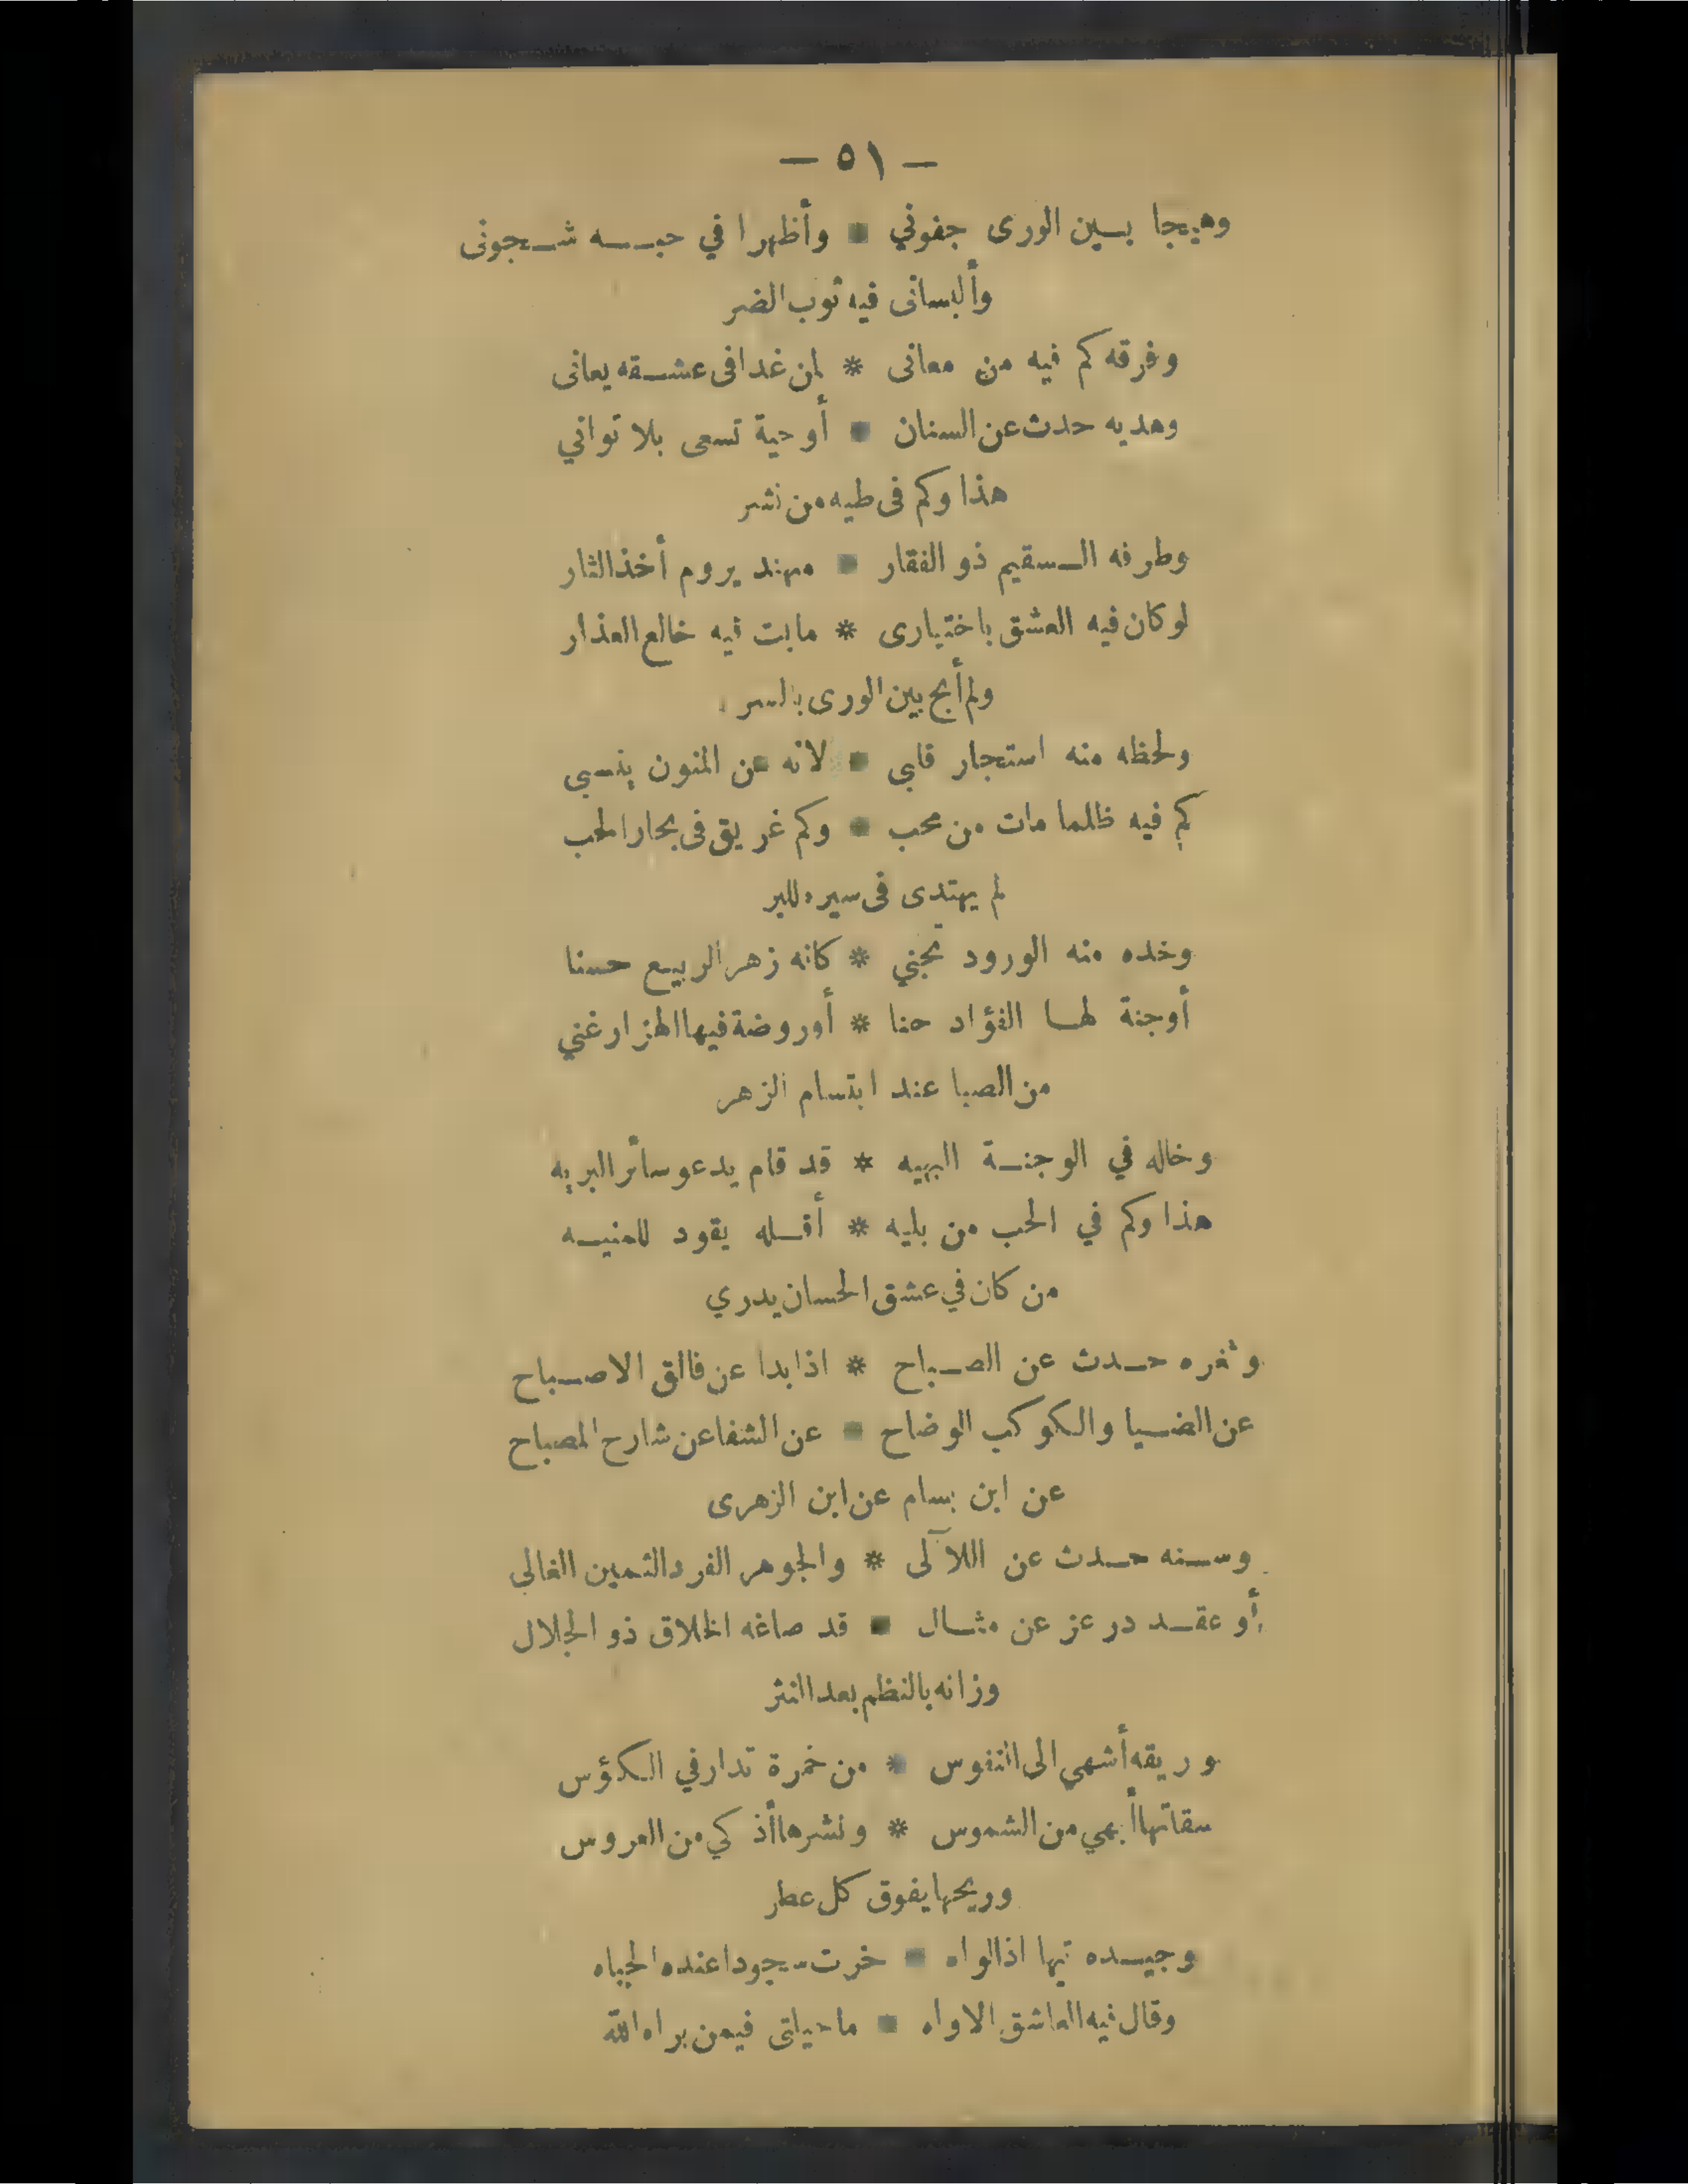 — ٥١ —
وهيجا بين الورى جفوني * وأظهرا في حبه شجونى
وألبسانى فيه ثوب الضر
وفرقه كم فيه من معانى * لمن غدا فى عشقه يعانى
وهدبه حدث عن السنان * أو حية تسعى بلا تواني
هذا وكم فى طيه من نشر
وطرفه السقيم ذو الفقار * مهند يروم أخذ الثار
لو كان فيه العشق باختيارى * ما بت فيه خالع العذار
ولم أبح بين الورى بالسر
ولحظه منه استجار قلبي * لانه عن المنون ينبي
كم فيه ظلما مات من محب * وكم غريق فى بحار الحب
لم يهتدى فى سيره للبر
وخده منه الورود تجني * كانه زهر الربيع حسنا
أو جنة لها الفؤاد حنا * أو روضة فيها الهزار غني
من الصبا عند ابتسام الزهر
وخاله في الوجنة البهيه * قد قام يدعو سائر البريه
هذا وكم في الحب من بليه * أقله يقود للمنيه
من كان في عشق الحسان يدري
وثغره حدث عن الصباح * اذا بدا عن فالق الاصباح
عن الضيا والكوكب الوضاح * عن الشفا عن شارح المصباح
عن ابن بسام عن ابن الزهرى
وسنه حدث عن اللآلى * والجوهر الفرد الثمين الغالي
أو عقد در عز عن مثال * قد صاغه الخلاق ذو الجلال
وزانه بالنظم بعد النثر
وريقه أشهي الى النفوس * من خمرة تدار في الكؤس
سقاتها أبهي من الشموس * ونشرها أذكي من العروس
وريحها يفوق كل عطر
وجيده تيها اذا لواه * خرت سجودا عنده الجباه
وقال فيه العاشق الاواه * ما حيلتى فيمن براه الله